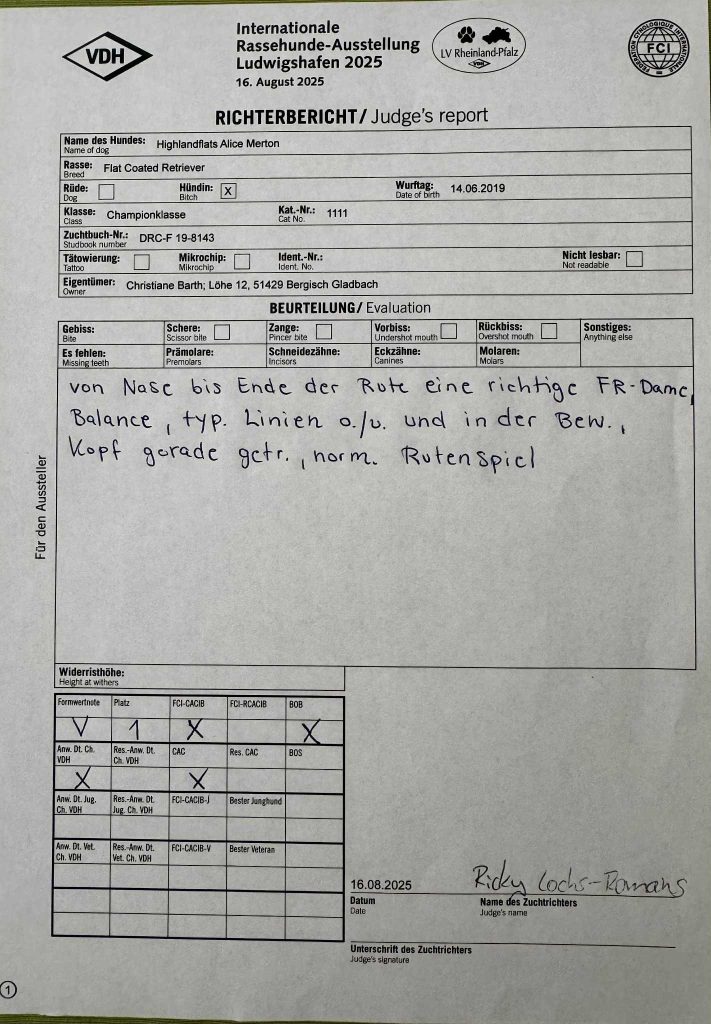 VDH
Internationale
Rassehunde-Ausstellung
Ludwigshafen 2025
16. August 2025
LV Rheinland-Pfalz
VDH
FEDERATION CYNOLOGIQUE INTERNATIONALE
FCI
RICHTERBERICHT/ Judge's report
Name des Hundes: Highlandflats Alice Merton
Name of dog
Rasse: Flat Coated Retriever
Breed
Rüde: Hündin: X Wurftag: 14.06.2019
Dog Bitch Date of birth
Klasse: Championklasse Kat.-Nr.: 1111
Class Cat No.
Zuchtbuch-Nr.: DRC-F 19-8143
Studbook number
Tätowierung: Mikrochip: Ident.-Nr.: Nicht lesbar:
Tattoo Mikrochip Ident. No. Not readable
Eigentümer: Christiane Barth; Löhe 12, 51429 Bergisch Gladbach
Owner
BEURTEILUNG/ Evaluation
Gebiss: Schere: Zange: Vorbiss: Rückbiss: Sonstiges:
Bite Scissor bite Pincer bite Undershot mouth Overshot mouth Anything else
Es fehlen: Prämolare: Schneidezähne: Eckzähne: Molaren:
Missing teeth Premolars Incisors Canines Molars
von Nase bis Ende der Rute eine richtige FR-Dame,
Balance, typ. Linien o./u. und in der Bew.,
Kopf gerade getr., norm. Rutenspiel
Für den Aussteller
Widerristhöhe:
Height at withers
Formwertnote Platz FCI-CACIB FCI-RCACIB BOB
V 1 X X
Anw. Dt. Ch. VDH Res.-Anw. Dt. Ch. VDH CAC Res. CAC BOS
X X
Anw. Dt. Jug. Ch. VDH Res.-Anw. Dt. Jug. Ch. VDH FCI-CACIB-J Bester Junghund
Anw. Dt. Vet. Ch. VDH Res.-Anw. Dt. Vet. Ch. VDH FCI-CACIB-V Bester Veteran
16.08.2025 Ricky Lochs-Romans
Datum Name des Zuchtrichters
Date Judge's name
Unterschrift des Zuchtrichters
Judge's signature
1